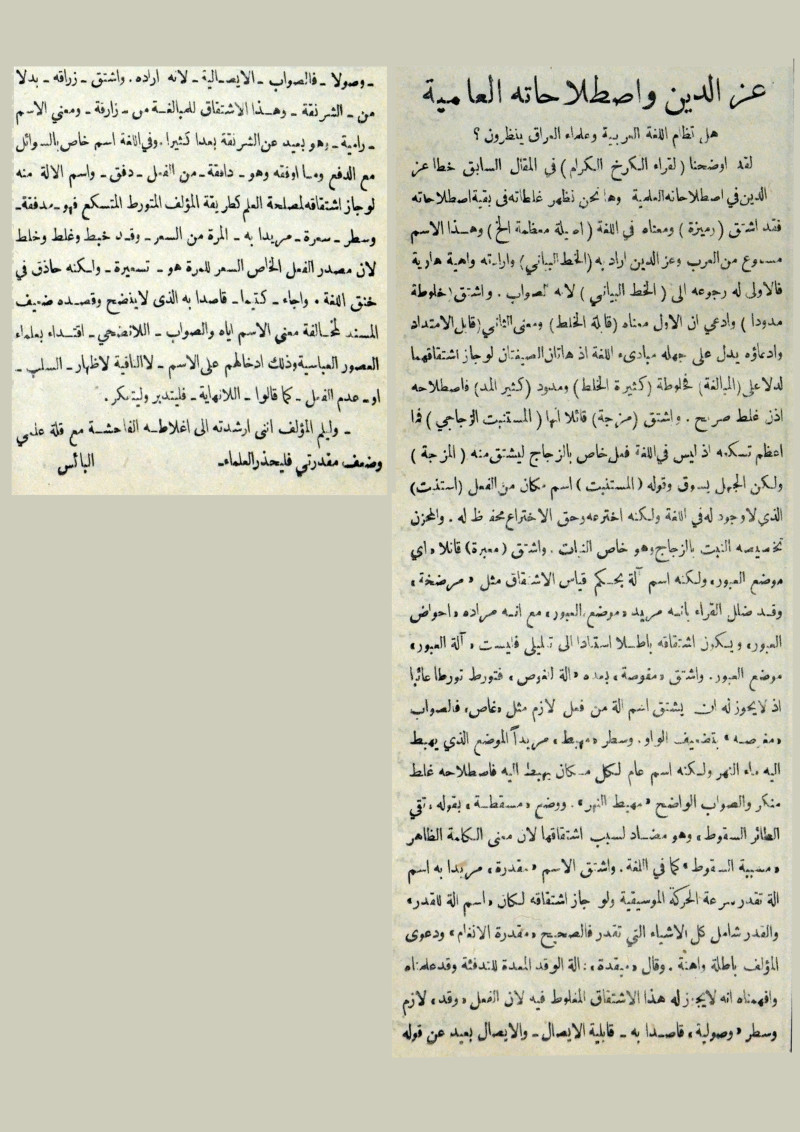 عز الدين واصطلاحاته العامية
هل تظام اللغة العربية وعلماء العراق ينظرون ؟
لقد اوضحنا ( لقراء الكرخ الكرام ) في المقال السابق خطا عز
الدين في اصطلاحاته العلمية وها نحن نظهر غلطاته في بقية اصطلاحاته
فقد اشتق ( رميزة ) ومعناه في اللغة ( اصيلة معظمة الخ ) وهذا الاسم
مسموع من العرب وعز الدين اراد به ( الخط البياني ) وارادته واهية هارية
فالاولى له رجوعه الى ( الخط البياني ) لانه الصواب . واشتق ( خلوطة
مدودا ) وادعي ان الاول معناه ( قابلة الخلط ) ومعنى الثاني ( قابل الامتداد
وادعاؤه يدل على جهله مبادىء اللغة اذ هاتان الصيغتان لو جاز اشتقاقهما
لدلا على ( المبالغة ) فخلوطة ( كثيرة الخلط ) ومدود ( كثير المد ) فاصطلاحه
اذن غلط صريح . واشتق ( مزجة ) قائلا انها ( المستنبت الزجاجي ) فما
اعظم تسكعه اذ ليس في اللغة فعل خاص بالزجاج ليشتق منه ( المزجة )
ولكن الجهل يسوق وقوله ( المستنبت ) اسم مكان من الفعل ( استنبت )
الذي لا وجود له في اللغة ولكنه اخترعه وحق الاختراع محفوظ له . والمحزن
تخصيصه النبت بالزجاج وهو خاص النبات . واشتق ( معبرة ) قائلا « اي
موضع العبور » ولكنه اسم آلة بحكم قياس الاشتقاق مثل « مرضخة »
وقد ضلل القراء بانه مريد « موضع العبور » مع انه مراده « احواض
العبور » ويكون اشتقاقه باطلا استنادا الى تعليلي فليست « آلة العبور »
موضع العبور . واشتق « مغوصة » بمعنى « الة الغوص » فتورط تورطا عائبا
اذ لا يجوز له ان يشتق اسم الة من فعل لازم مثل « غاص » فالصواب
« مغوصه » بتضعيف الواو . وسطر « مهبط » مريداً الموضع الذي يهبط
اليه ماء النهر ولكنه اسم عام لكل مكان يهبط اليه فاصطلاحه غلط
منكر والصواب الواضح « مهبط النهر » . ووضع « مسقطة » بقوله « تقي
الطائر السقوط » وهو مضاد لسبب اشتقاقها لان معنى الكلمة الظاهر
« مسببة السقوط » كما في اللغة . واشتق الاسم « مقدرة » مريدا به اسم
الة تقدر سرعة الحركة الموسيقية ولو جاز اشتقاقه لكان « اسم الة للقدر »
والقدر شامل كل الاشياء التي تقدر فالصحيح « مقدرة الانغام » ودعوى
المؤلف باطلة واهنة . وقال « ميقدة » : الة الوقد المعدة للتدفئة وقد علمناه
وافهمناه انه لا يجوز له هذا الاشتقاق المغلوط فيه لان الفعل « وقد » لازم
وسطر « وصولية » قاصدا به ـ قابلية الايصال ـ والايصال بعيد عن قوله
ـ وصولا ـ فالصواب ـ الايصالية ـ لانه اراده . واشتق ـ زراقه ـ بدلا
من ـ الشرنقة ـ وهذا الاشتقاق للمبالغة من ـ زارقة ـ ومعني الاسم
ـ رامية ـ وهو بعيد عن الشرنقة بعدا كثيرا . وفي اللغة اسم خاص بالسوائل
مع الدفع وما اوفقه وهو ـ دافقة ـ من الفعل ـ دفق ـ واسم الالة منه
لو جاز اشتقاقه لمصلحة العلم كطريقة المؤلف المتورط المتسكع فهو ـ مدفقة ـ
وسطر ـ سعرة ـ مريدا به ـ المرة من السعر ـ وقد خبط وغلط وخلط
لان مصدر الفعل الخاص السعر للمرة هو ـ تسعيرة ـ ولكنه حاذق في
خنق اللغة . واجاء ـ كتيما ـ قاصدا به الذى لا ينضح وقصده ضعيف
المسند لمخالفة معنى الاسم اياه والصواب ـ اللانضحي ـ اقتداء بعلماء
العصور العباسية وذلك ادخالهم على الاسم ـ لا النافية لاظهار ـ السلب ـ
او ـ عدم الفعل ـ كما قالوا ـ اللانهاية ـ فليتدبر وليتفكر .
ـ وليعلم المؤلف انني ارشدته الى اغلاطه الفاحشة مع قلة علمي
وضعف مقدرتي فليحذر العلماء ـ البائس